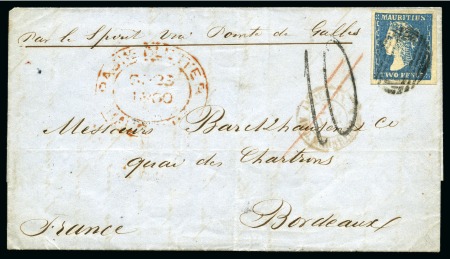 Par le Spout via Pointe de Galles
MAURITIUS
TWO PENCE
1860
10
Messieurs Barckhausen & Ce
quai des Chartrons
Bordeaux
France